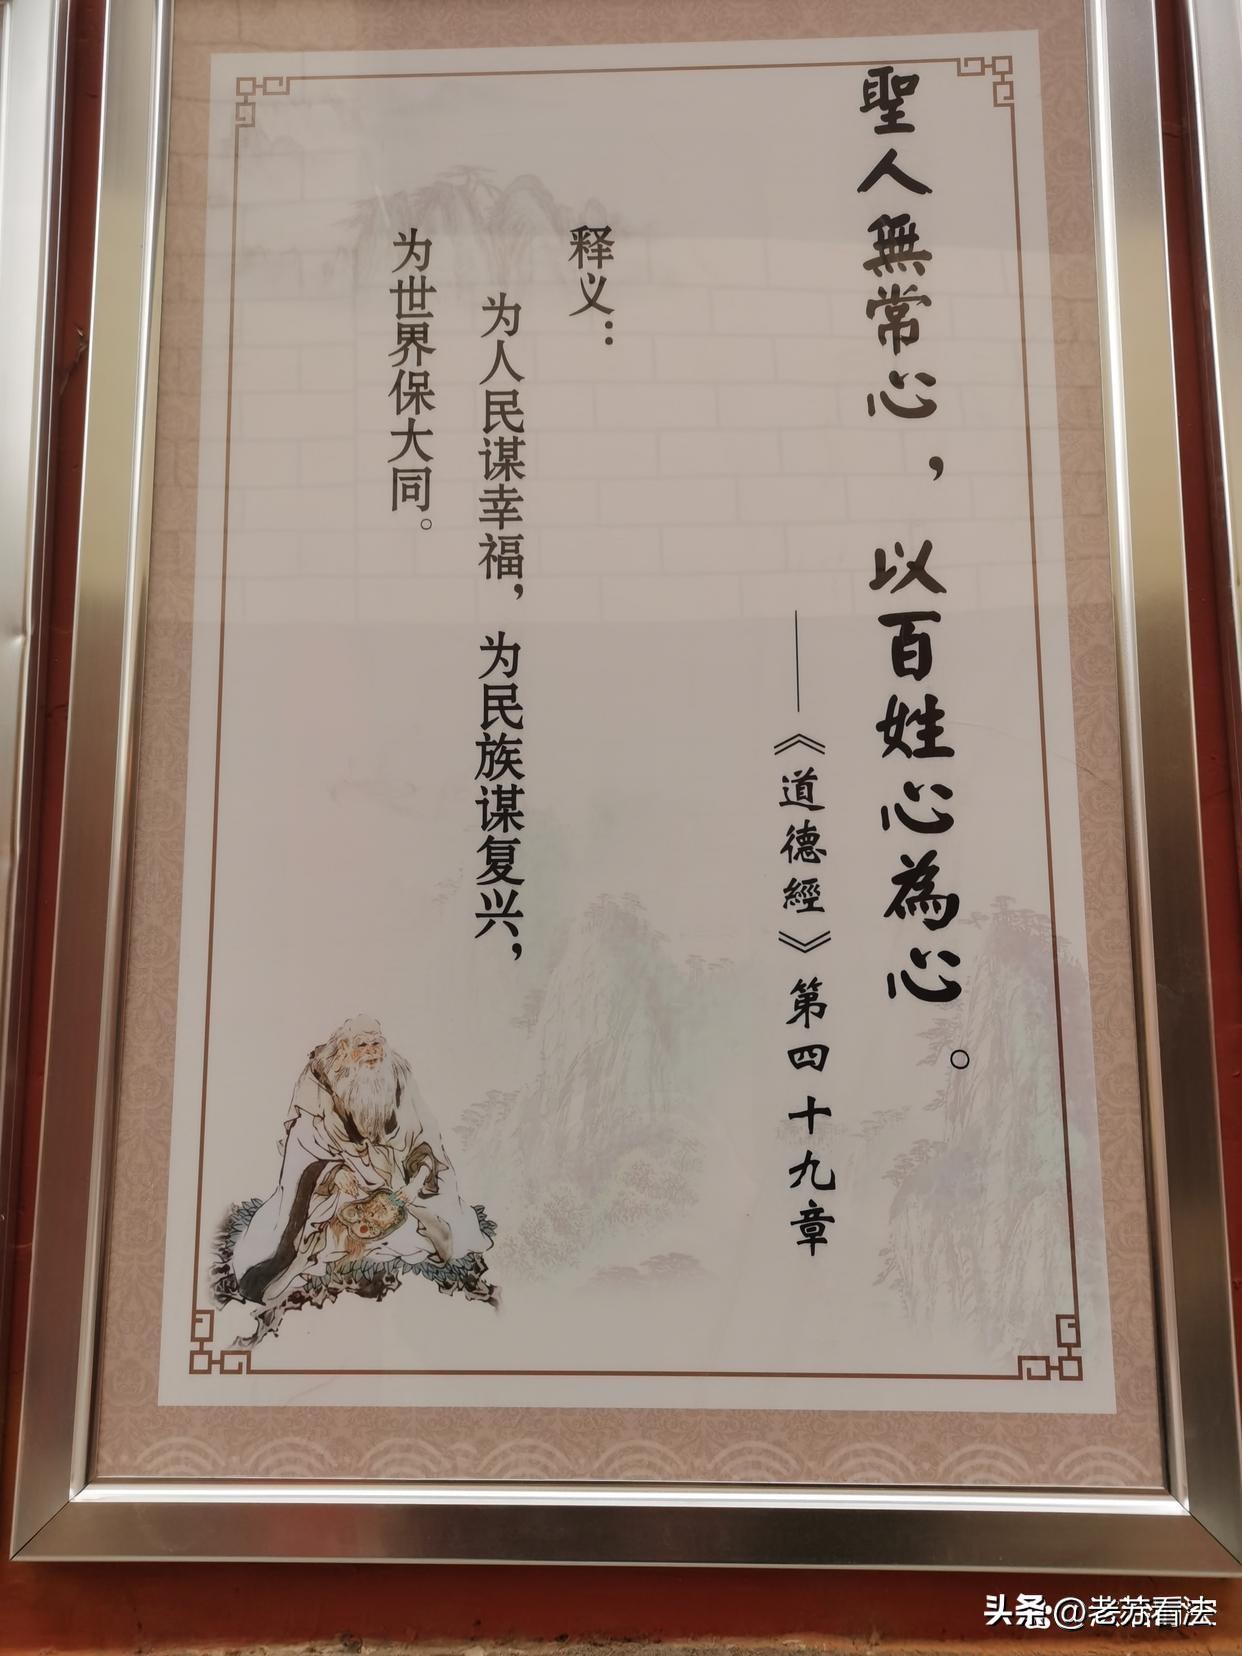 聖人無常心，以百姓心為心。
——《道德經》第四十九章
释义：
为人民谋幸福，为民族谋复兴，
为世界保大同。
头条@老苏看法